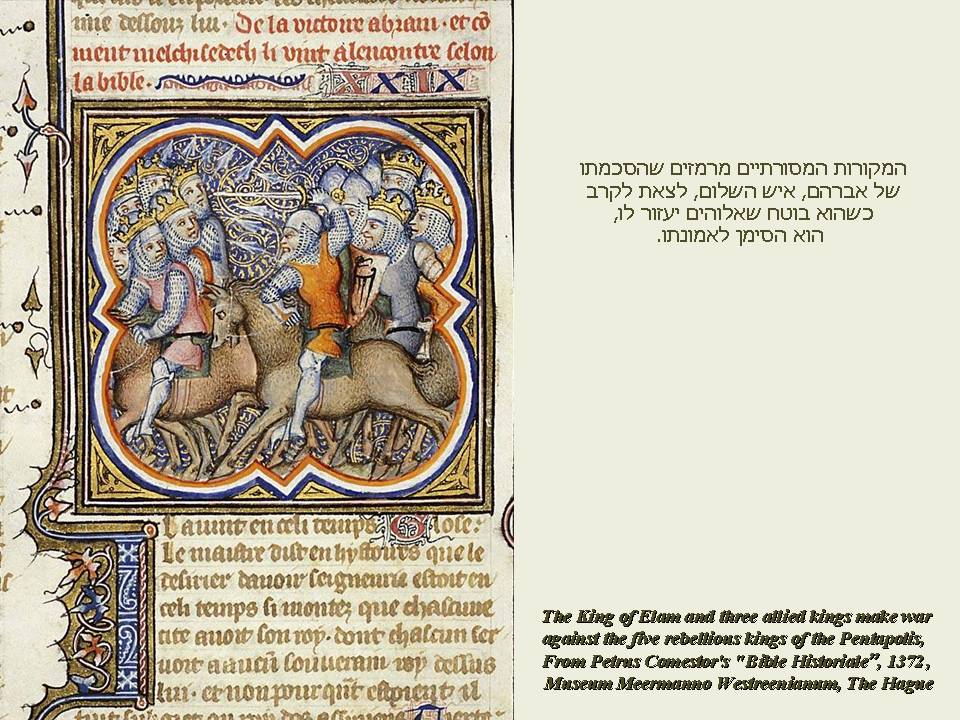 me dessouz lui. De la victoire abram. et cõ
ment melchisedech li vint alencontre selon
la bible. XXIX
Lavint en celi temps Glose.
Le maistre dist en hystoires que le
desirier davoir seigneurie estoit en
celi temps si montez que chascune
cite avoit son roy. dont chascun ser
voit a aucun souverain roy dessus
lui. et non pour quãt estoient il
המקורות המסורתיים מרמזים שהסכמתו
של אברהם, איש השלום, לצאת לקרב
כשהוא בוטח שאלוהים יעזור לו,
הוא הסימן לאמונתו.
The King of Elam and three allied kings make war
against the five rebellious kings of the Pentapolis,
From Petrus Comestor's "Bible Historiale”, 1372,
Museum Meermanno Westreenianum, The Hague